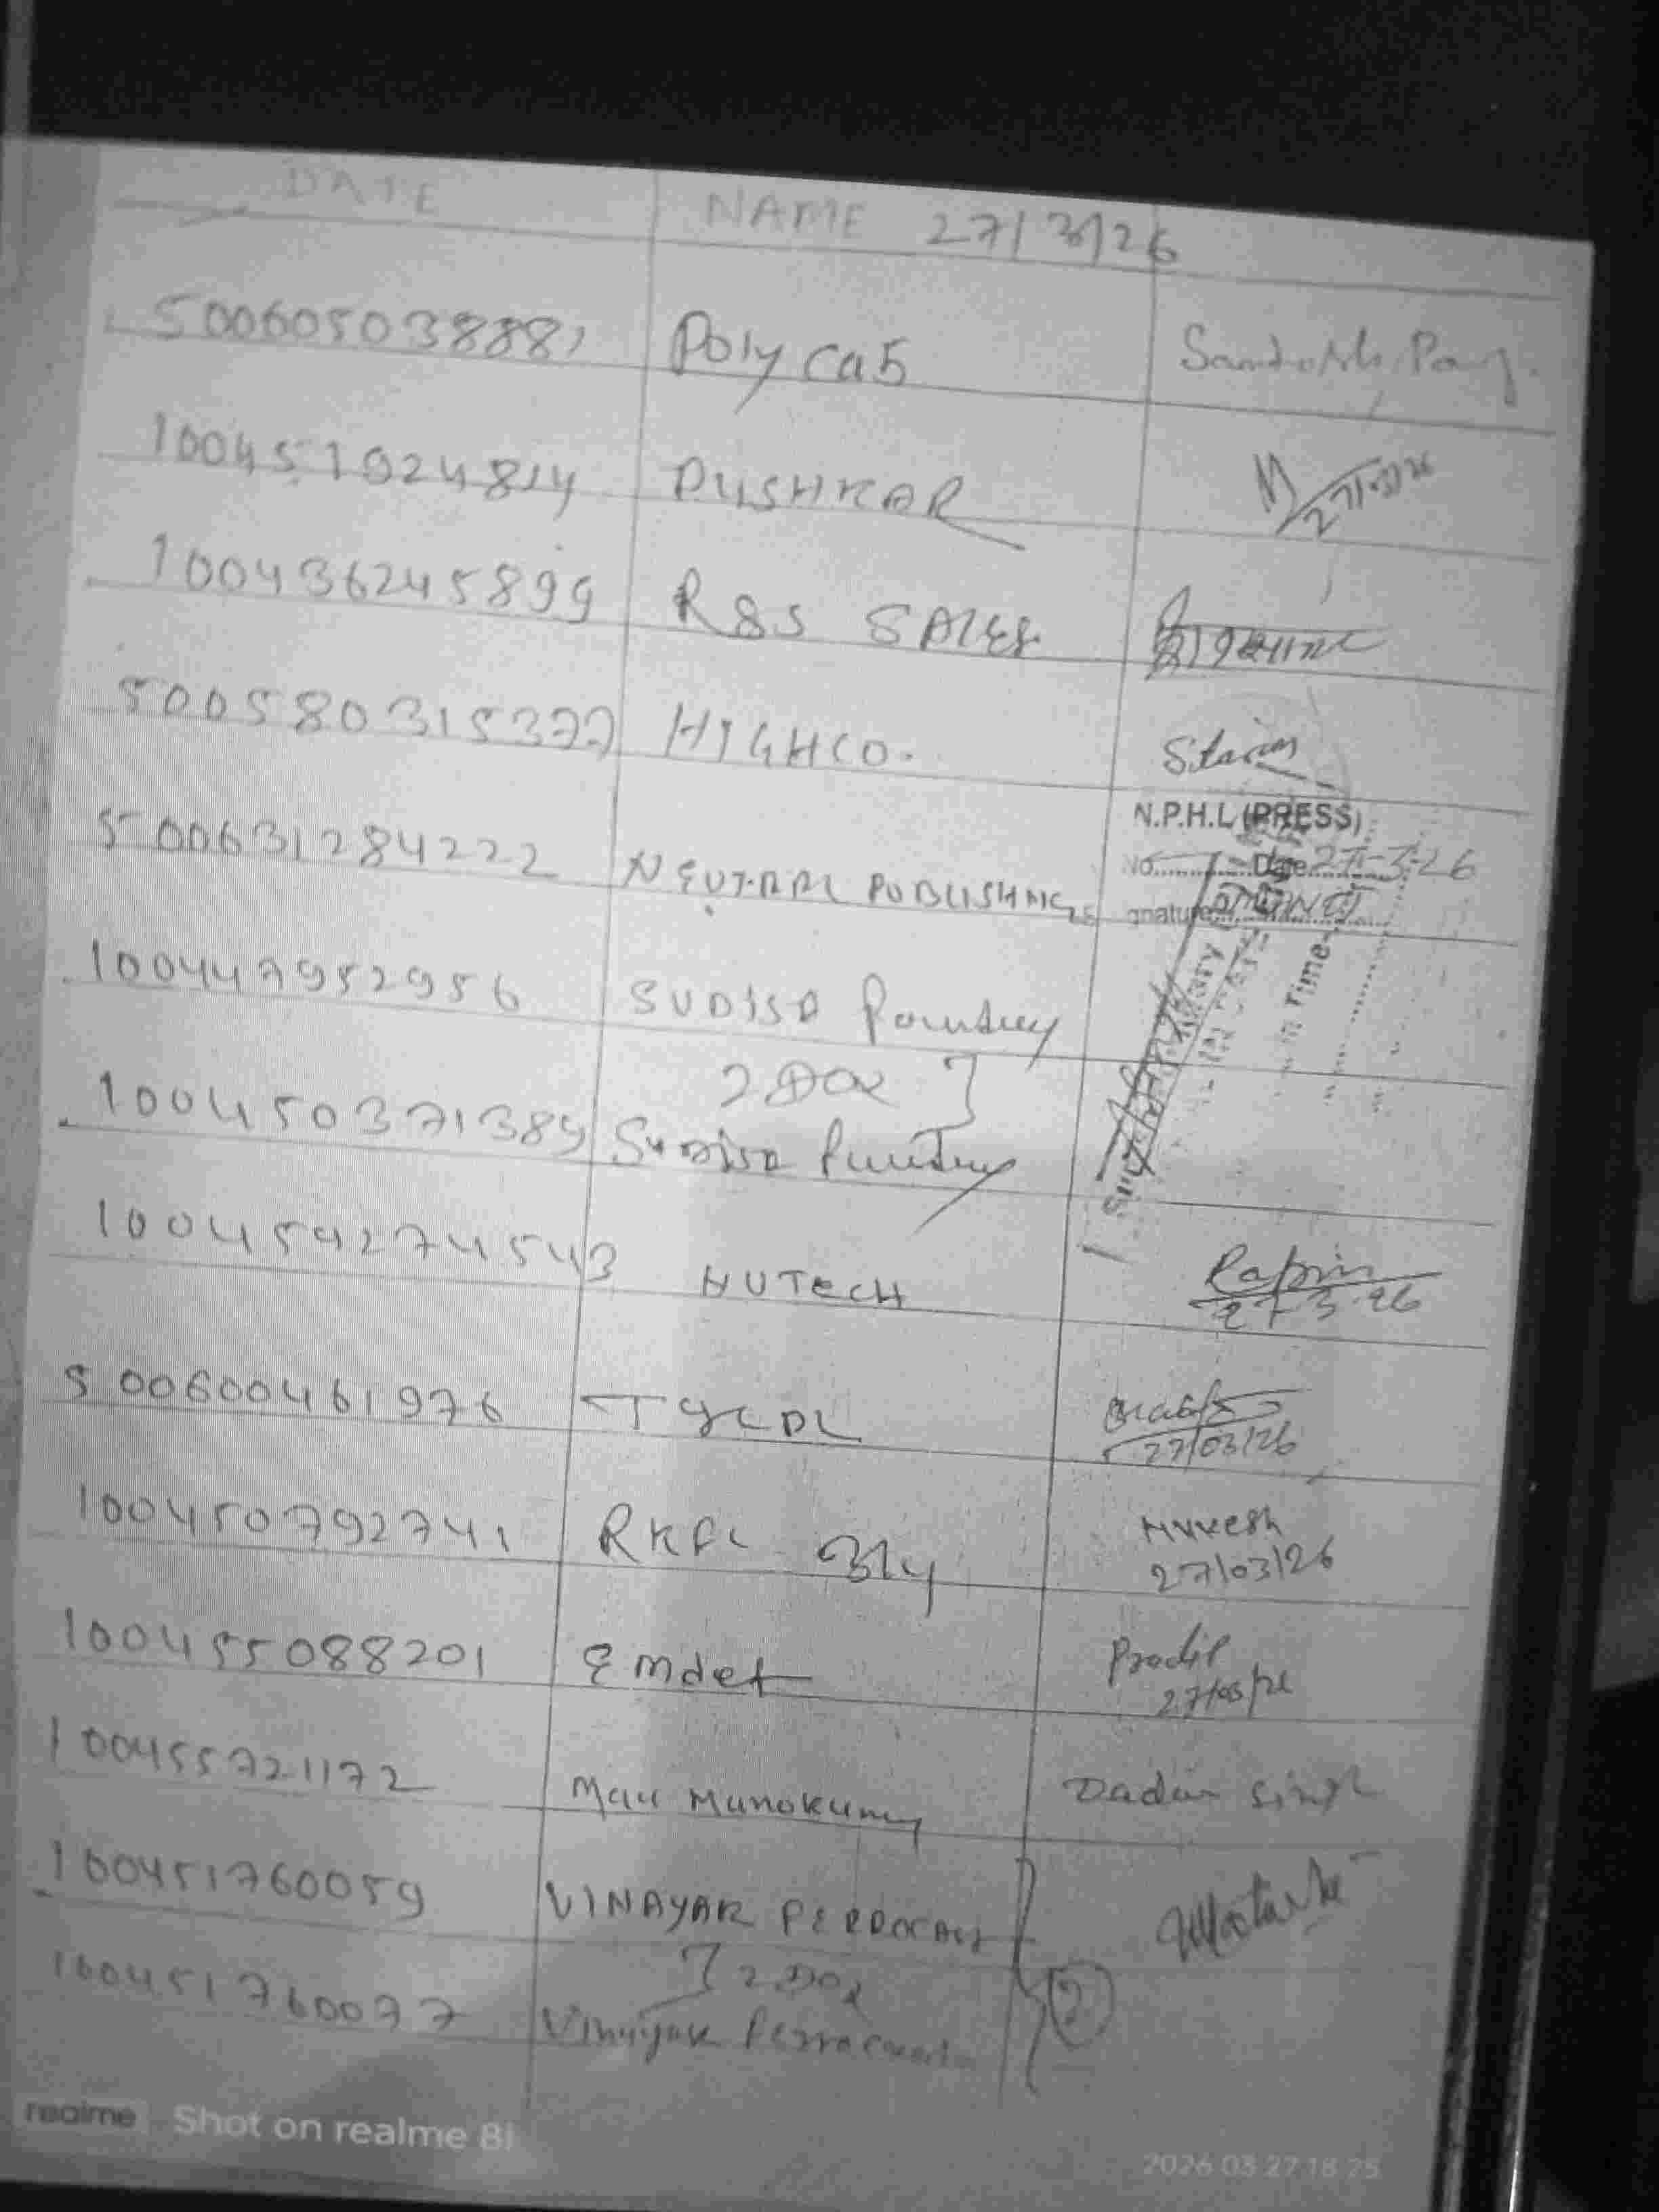 DATE NAME 27/3/26
500605038881 Polycab Santosh
100451024814 PUSHKAR 27/03/26
100436245899 R&S SALES
500580315377 HIGHCO.
N.P.H.L (PRESS)
500631284222 NEUTRAL PUBLISHING No. Date 27-3-26
gnature
100447952956 SUDISA Foundry
2 DOX
Time
100450371389 Sudisa Foundry
100459274543 HUTECH
27-3-26
500600461976 TGCDL
27/03/26
100450792741 RKFL Mukesh
27/03/26
100455088201 Emdet
27/03/26
100455721172
100451760059 VINAYAK
2 DOX 2
100451760077 Vinayak
realme Shot on realme 8i
2026.03.27 18:25